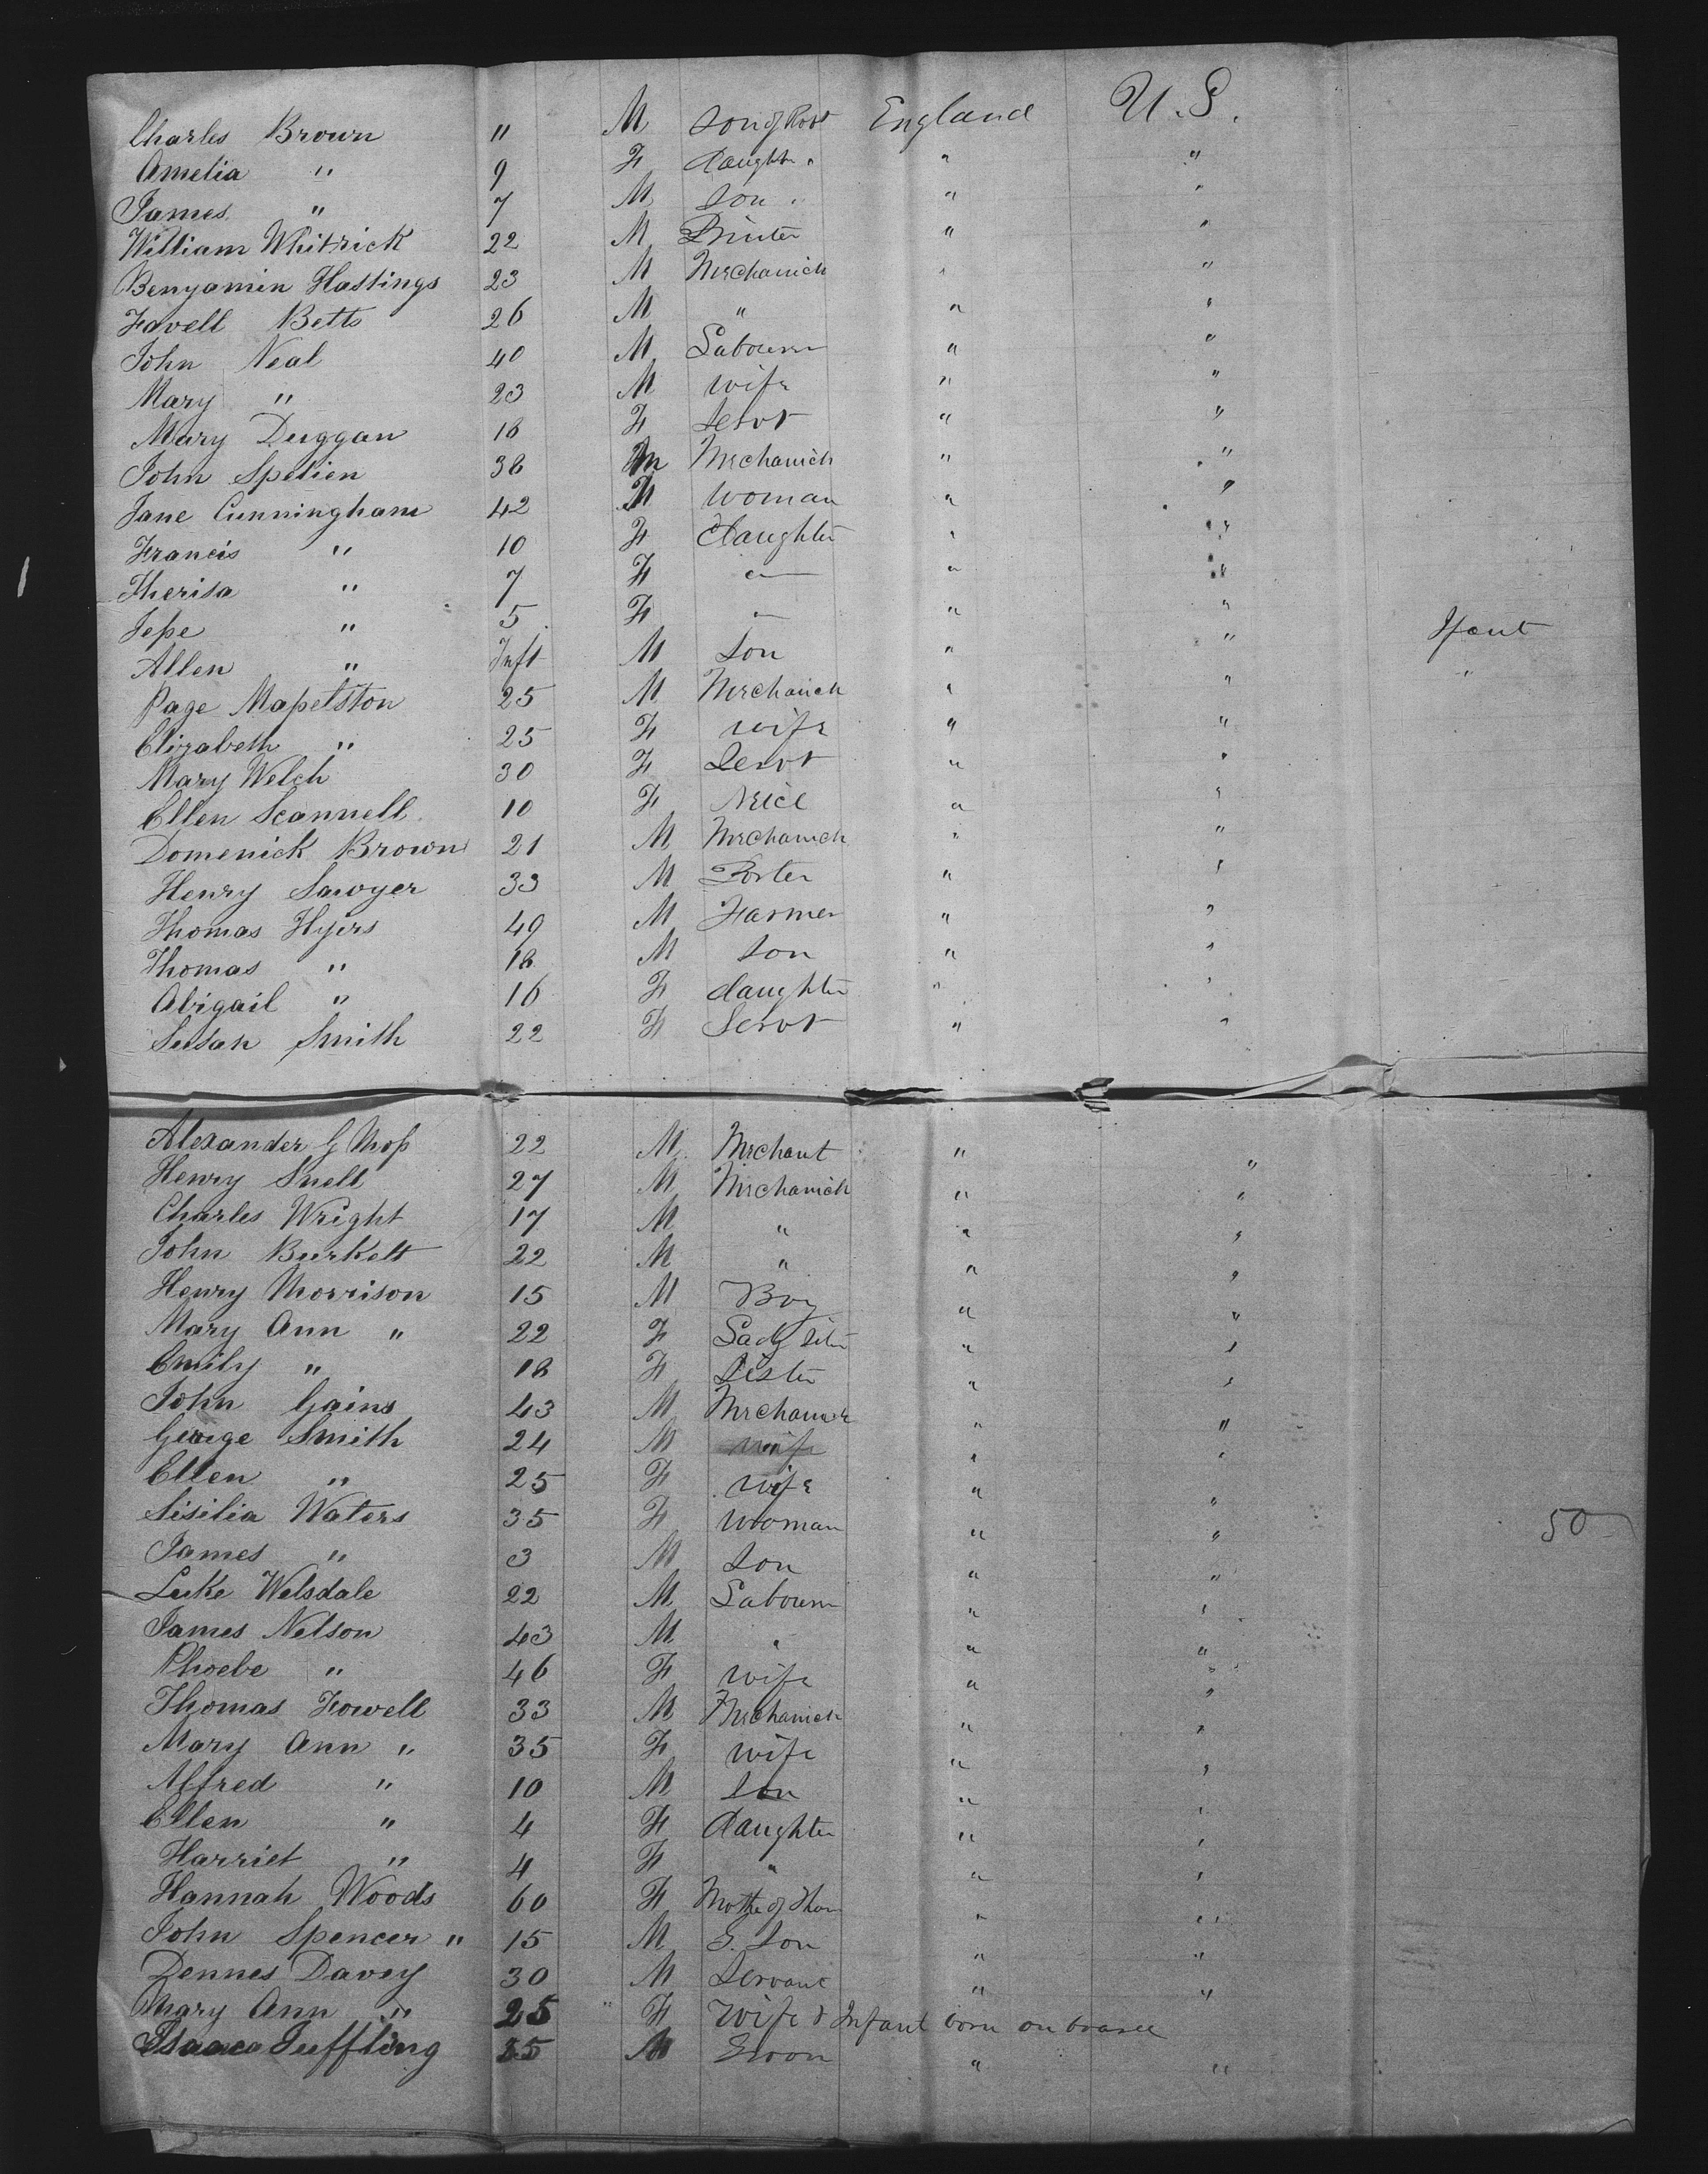 Charles Brown 11 M Son of Robt England U.S.
Amelia " 9 F daughtr " " "
James " 7 M Son " " "
William Whitrick 22 M Printer " "
Benjamin Hastings 23 M Mechanich " "
Favell Betts 26 M " " "
John Neal 40 M Labourer " "
Mary " 23 M wife " "
Mary Duggan 18 F Servt " "
John Spelien 38 M Mechanich " "
Jane Cunningham 42 woman " "
Francis " 10 F daughter " "
Therisa " 7 F " " "
Jesse " 5 F " " "
Allen " Inft M Son " " Ifant
Page Mapelston 25 M Mechanich " " "
Elizabeth " 25 F wife " "
Mary Welch 30 F Servt " "
Ellen Scannell 10 F Neice " "
Domenick Brown 21 M Mechanich " "
Henry Sawyer 33 M Porter " "
Thomas Hyers 49 M Farmer " "
Thomas " 18 M Son " "
Abigail " 16 F daughter " "
Susan Smith 22 F Servt " "
Alexander G Moss 22 M Mrchant " "
Henry Snell 27 M Mechanich " "
Charles Wright 17 M " " "
John Burkett 22 M " " "
Henry Morrison 15 M Boy " "
Mary Ann " 22 F Lady " "
Emily " 18 F Sister " "
John Gains 43 M " "
George Smith 24 M " "
Ellen " 25 F wife " "
Sisilia Waters 35 F Woman " " 50
James " 3 M Son " "
Luke Welsdale 22 M Labourer " "
James Nelson 43 M " " "
Phoebe " 46 F wife " "
Thomas Fowell 33 M Mechanich " "
Mary Ann " 35 F wife " "
Alfred " 10 M Son " "
Ellen " 4 F daughter " "
Harriet " 4 F " " "
Hannah Woods 60 F Mother of Thos " "
John Spencer " 15 M G. Son " "
Dennes Davey 30 M Servant " "
Mary Ann " 25 " F Wife & Infant born on board
Isaac Tuffling 35 M " "